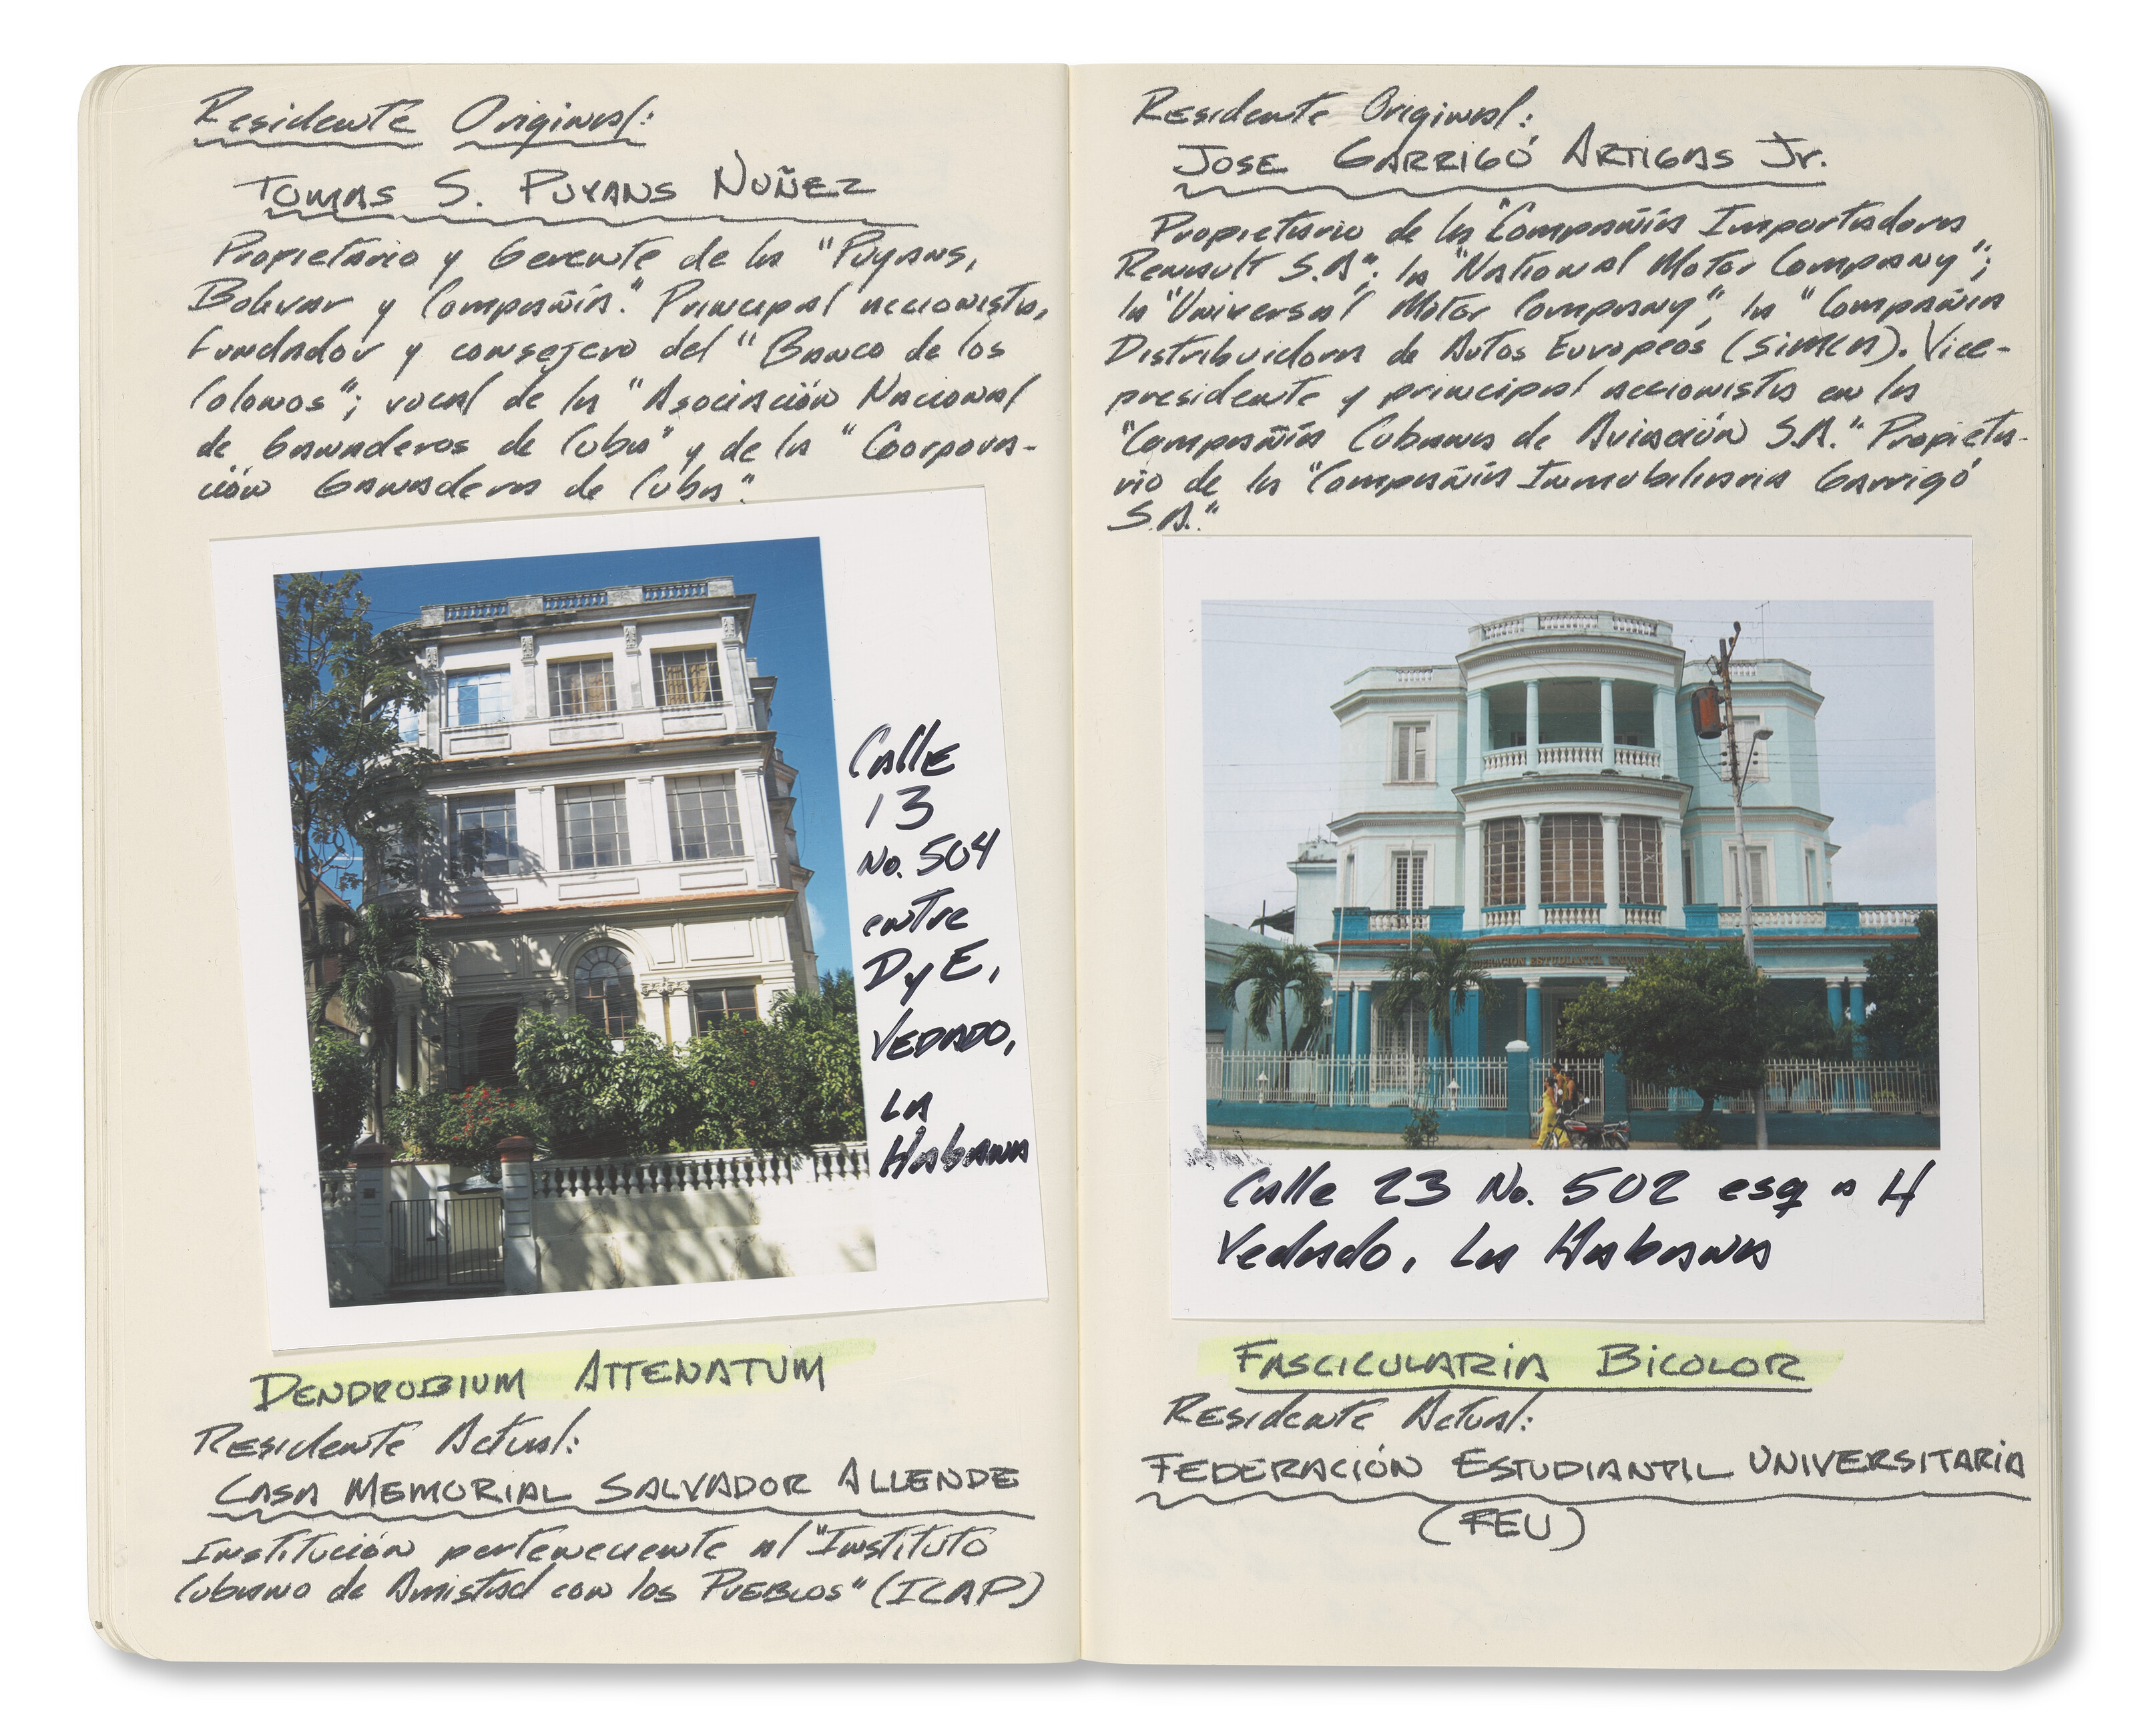 Residente Original:
TOMAS S. PUYANS NUÑEZ
Propietario y Gerente de la "Puyans,
Bolivar y Compañía." Principal accionista,
fundador y consejero del "Banco de los
Colonos"; vocal de la "Asociación Nacional
de Ganaderos de Cuba" y de la "Coorpora-
ción Ganadera de Cuba".
Calle
13
No. 504
entre
D y E,
VEDADO,
LA
Habana
DENDROBIUM ATTENATUM
Residente Actual:
CASA MEMORIAL SALVADOR ALLENDE
Institución perteneciente al "Instituto
Cubano de Amistad con los PUEBLOS" (ICAP)
Residente Original:
JOSE GARRIGÓ ARTIGAS Jr.
Propietario de la "Compañía Importadora
Renault S.A"; la "National Motor Company";
la "Universal Motor Company", la "Compañia
Distribuidora de Autos Europeos (SIMCA). Vice-
presidente y principal accionista en la
"Compañía Cubana de Aviación S.A." Propieta-
rio de la "Compañía Inmobiliaria Garrigó
S.A."
FEDERACION ESTUDIANTIL
Calle 23 No. 502 esq a H
Vedado, La Habana
FASCICULARIA BICOLOR
Residente Actual:
FEDERACIÓN ESTUDIANTIL UNIVERSITARIA
(FEU)